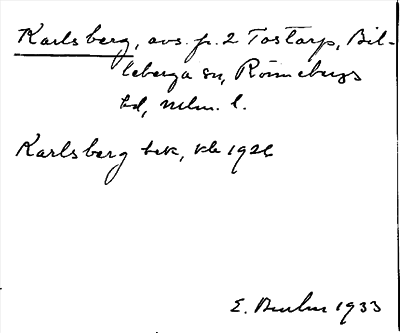 Karlsberg, avs. fr. 2 Tostarp, Bil-
leberga sn, Rönnebergs
hd, Mlm. l.
Karlsberg bek, kb 1926
E. 1933